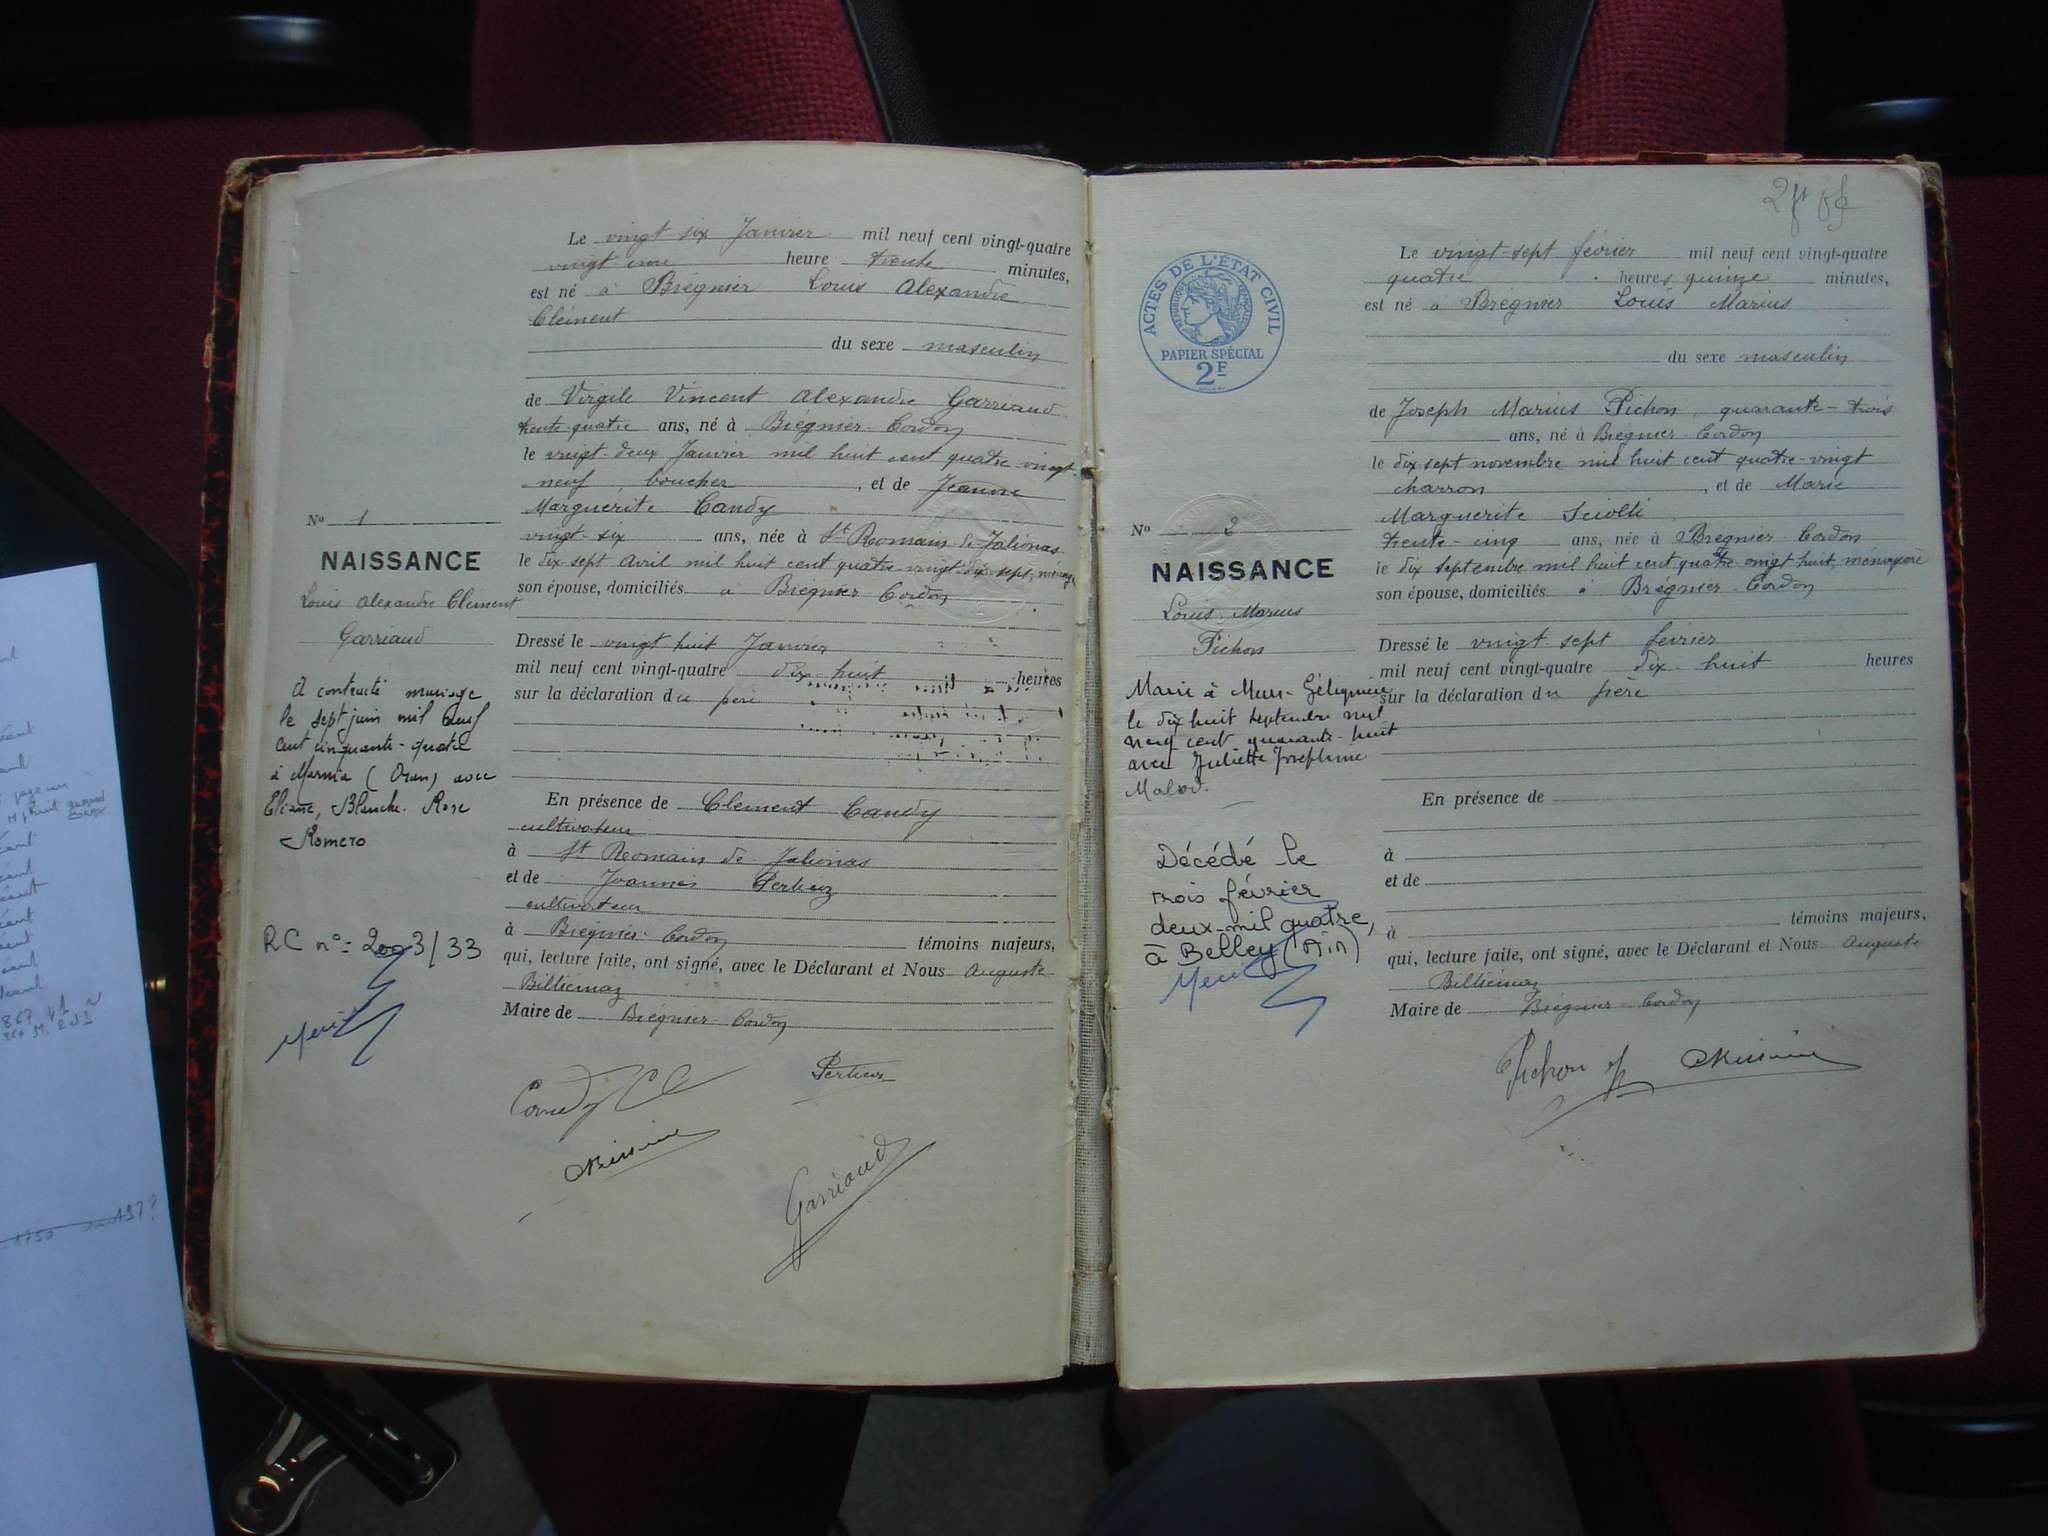 Le vingt six Janvier mil neuf cent vingt-quatre
vingt une heure trente minutes,
est né à Brégnier Louis Alexandre
Clément
du sexe masculin
de Virgile Vincent Alexandre Garriaud
trente quatre ans, né à Brégnier-Cordon
le vingt-deux Janvier mil huit cent quatre vingt
neuf, boucher, et de Jeanne
Marguerite Candy
vingt-six ans, née à St Romain de Jalionas
le dix-sept Avril mil huit cent quatre-vingt dix-sept,
son épouse, domiciliés à Brégnier Cordon
Dressé le vingt huit Janvier
mil neuf cent vingt-quatre dix-huit heures
sur la déclaration du père
En présence de Clément Candy
cultivateur
à St Romain de Jalionas
et de Joannès
cultivateur
à Brégnier-Cordon témoins majeurs,
qui, lecture faite, ont signé, avec le Déclarant et Nous Auguste
Billiémaz
Maire de Brégnier-Cordon
Garriaud
No 1
NAISSANCE
Louis Alexandre Clément
Garriaud
A contracté mariage
le sept juin mil neuf
cent cinquante-quatre
à Marnia (Oran) avec
Eliane, Blanche. Rose
Romero
RC n°= 2003/33
ACTES DE L'ÉTAT CIVIL
PAPIER SPÉCIAL
2F
No 2
NAISSANCE
Louis Marius
Pichon
Marié à Murs-Géligneux
le dix huit septembre mil
neuf cent quarante-huit
avec Juliette Joséphine
Décédé le
trois février
deux-mil quatre,
à Belley (Ain)
Le vingt-sept février mil neuf cent vingt-quatre
quatre heures quinze minutes,
est né à Brégnier Louis Marius
du sexe masculin
de Joseph Marius Pichon, quarante-trois
ans, né à Brégnier-Cordon
le dix-sept novembre mil huit cent quatre-vingt
charron, et de Marie
Marguerite
trente-cinq ans, née à Brégnier-Cordon
le dix septembre mil huit cent quatre-vingt huit, ménagère
son épouse, domiciliés à Brégnier-Cordon
Dressé le vingt sept février
mil neuf cent vingt-quatre dix-huit heures
sur la déclaration du père
En présence de
à
et de
à témoins majeurs,
qui, lecture faite, ont signé, avec le Déclarant et Nous Auguste
Billiémaz
Maire de Brégnier-Cordon
Pichon